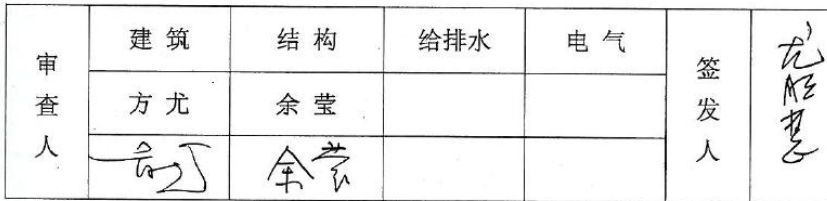 审查人 建筑 结构 给排水 电气 签发人
方尤 余莹
余莹